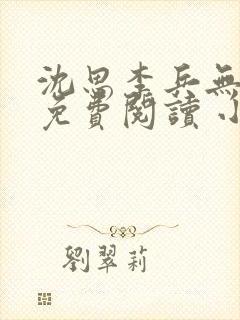 沈思李兵無
免費閱讀 小
劉翠莉